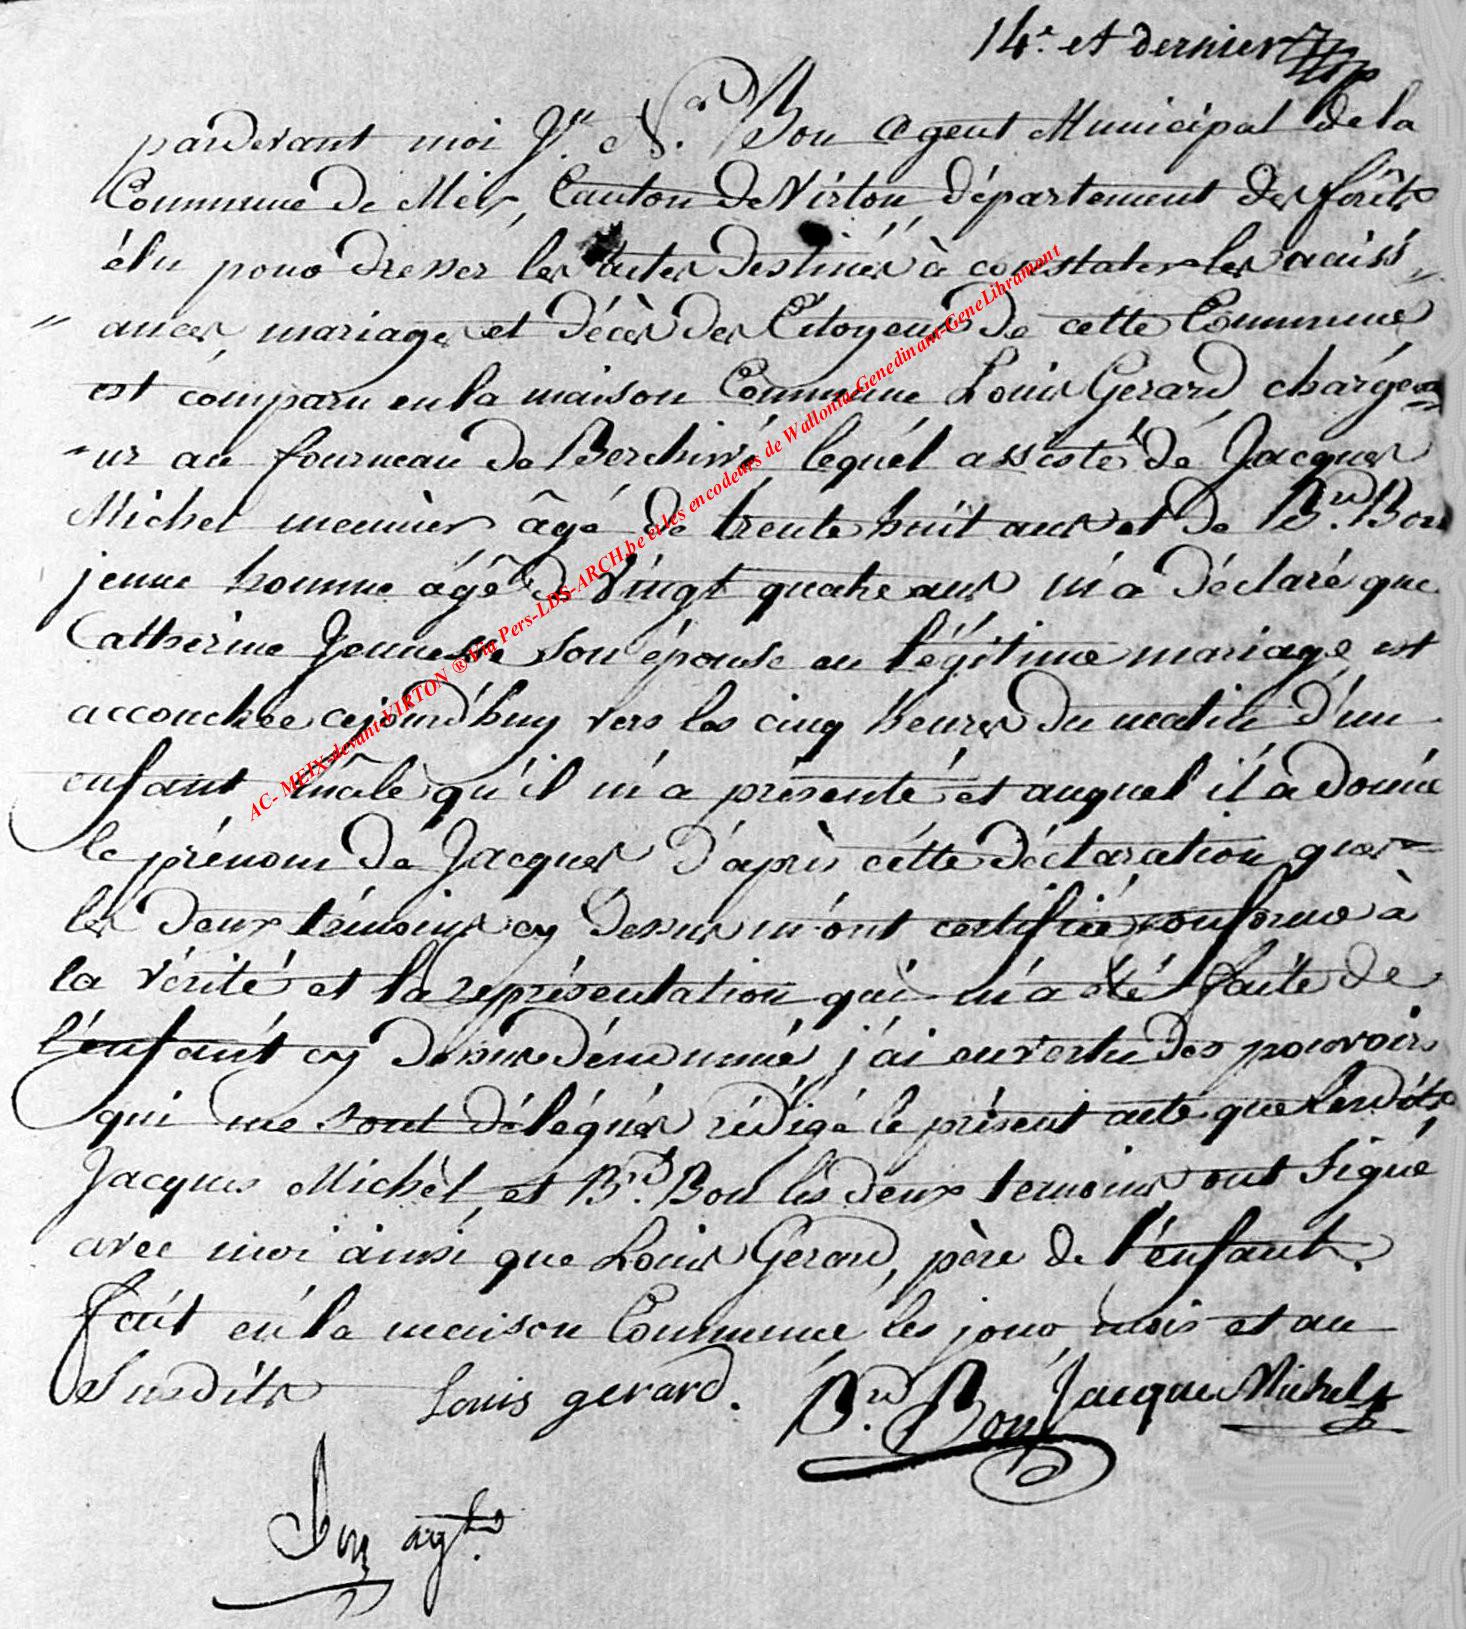 14e et dernier
pardevant moi Jn. Ns. Bon agent Municipal de la
Commune de Meix, Canton de Virton, département des forêts
élu pour dresser les actes destinés à constater les naiss
ances, mariages et décès des Citoyens de cette Commune
est comparu en la maison Commune Louis Gerard, chargé
ur au fourneau de Berchivé lequél assisté de Jacques
Michel meunier âgé de trente huit ans et de Brd. Bon
jeune homme âgé de Vingt quatre ans m'a déclaré que
Catherine Jeunesse son épouse en légitime mariage est
accouchée cejourd'huy vers les cinq heures du matin d'un
enfant mâle qu'il m'a présenté et auquel il a donné
le prénom de Jacques d'après cétte déclaration que
les deux témoins cy dessus m'ont certifiée conforme à
la vérité et la représentation qui m'a été faite de
l'enfant cy dessus dénommé, j'ai en vertu des pouvoirs
qui me sont délégués rédigé le présent acte que lesdits
Jacques Michèl, et Brd. Bon les deux temoins, ont signé
avec moi ainsi que Louis Gerard, père de l'enfant.
fait en la maison Commune les jour, mois et an
susdits Louis gerard. Brd. Bon Jacque Michel
Bon agt.
AC- MEIX-devant-VIRTON ® Via Pers-LDS-ARCH.be et les encodeurs de Wallonia-Genedinant-GeneLibramont